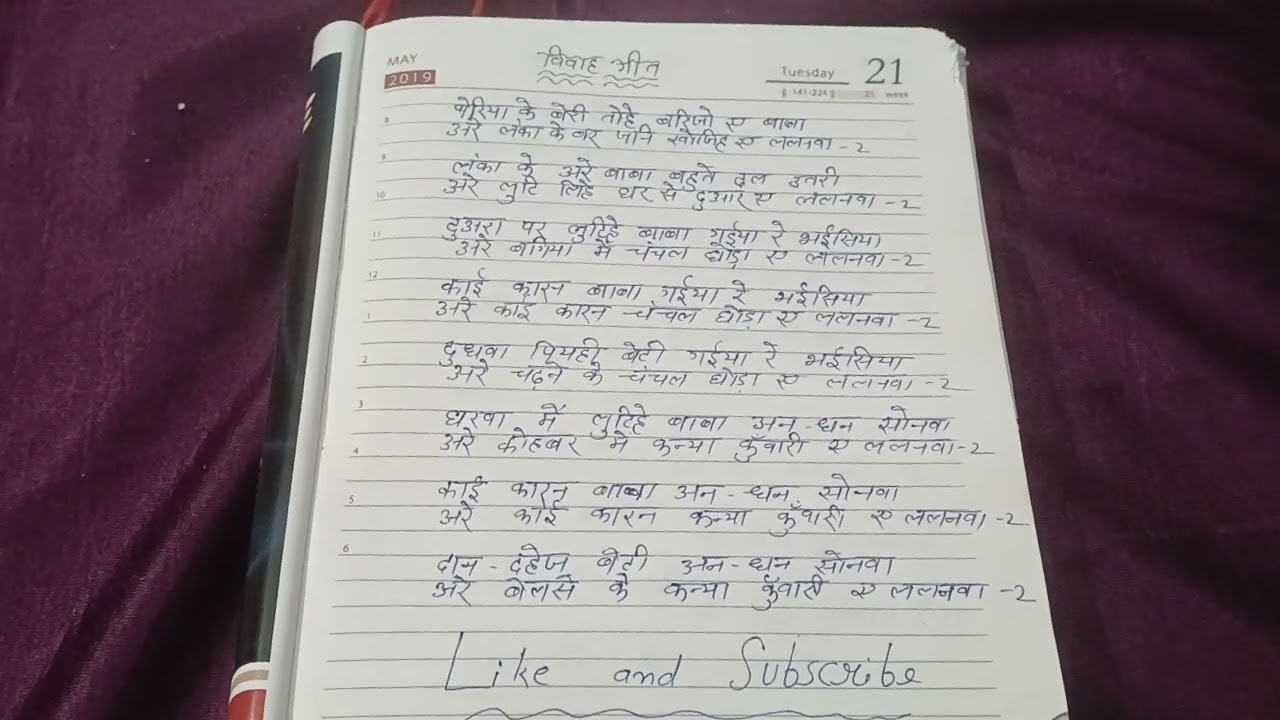 MAY
2019
विवाह गीत
Tuesday 21
141-224 21 week
बेरिया के बेरी तोहे बरिजो ए बाबा
अरे लंका के बर जनि खोजिह ए ललनवा -2
लंका के अरे बाबा बहुते दल उतरी
अरे लुटि लिहे घर से दुआर ए ललनवा -2
दुअरा पर लुटिहे बाबा गईया रे भईसिया
अरे बगिया मे चंचल घोड़ा ए ललनवा -2
काई कारन बाबा गईया रे भईसिया
अरे काई कारन चंचल घोड़ा ए ललनवा -2
दुधवा पियही बेटी गईया रे भईसिया
अरे चढ़ने के चंचल घोड़ा ए ललनवा -2
घरवा में लुटिहे बाबा अन-धन सोनवा
अरे कोहबर मे कन्या कुँवारी ए ललनवा -2
काई कारन बाबा अन-धन सोनवा
अरे काई कारन कन्या कुँवारी ए ललनवा -2
दान-दहेज बेटी अन-धन सोनवा
अरे बेलसे के कन्या कुँवारी ए ललनवा -2
Like and Subscribe
8
9
10
11
12
1
2
3
4
5
6